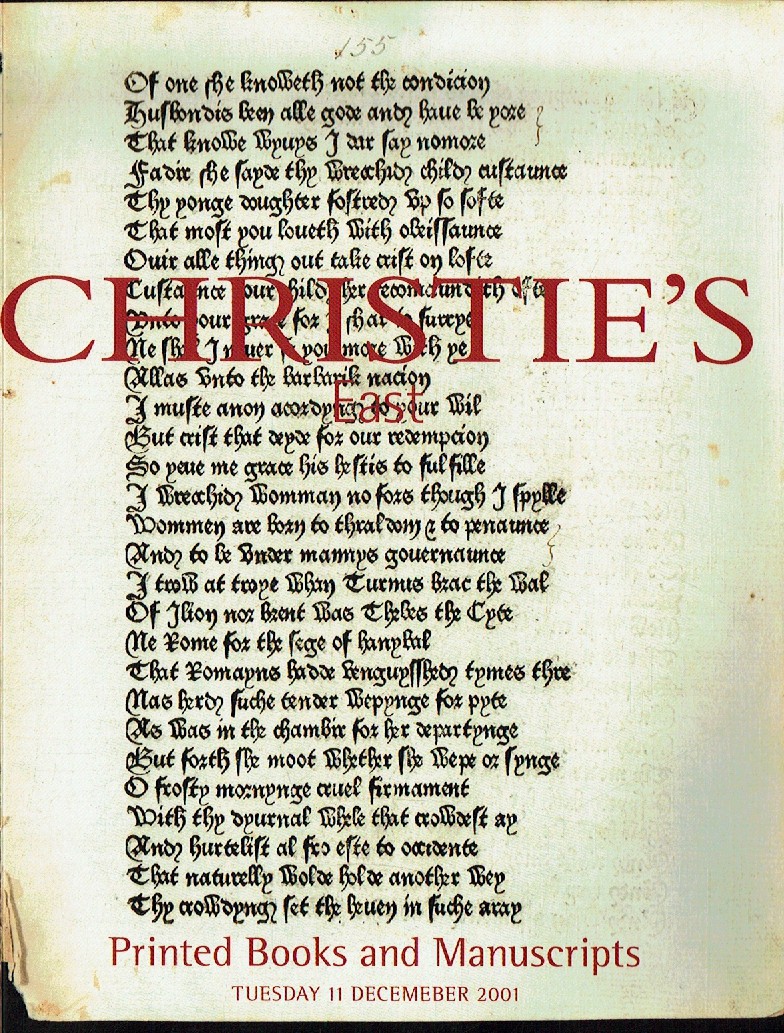 155
Of one she knoweth not the condicion
Husbondis been alle gode and haue be yore
That knowe wyuys I dar say nomore
Fadir she sayde thy wrecchid child custaunce
Thy yonge doughter fostred vp so softe
That most you loueth with obeissaunce
Ouir alle thing out take crist on lofte
Custaunce your child her recomaundeth ofte
CHRISTE'S
Vnto your grace for I shal to surrye
Ne shal I neuer you more with ye
Allas vnto the barbarik nacion
East
I muste anon acordyng to your wil
But crist that deyde for our redempcion
So yeue me grace his hestis to fulfille
I wrecchid womman no fors though I spylle
Wommen are born to thraldom & to penaunce
And to be vnder mannys gouernaunce
I trow at troye whan Turnus brac the wal
Of Ilion nor brent was Thebes the Cyte
Ne Rome for the sege of hanybal
That Romayns hadde venguysshed tymes thre
Nas herd suche tender wepynge for pyte
As was in the chambir for her departynge
But forth she moot whether she wepe or synge
O frosty mornynge cruel firmament
With thy dyurnal whele that crowdest ay
And hurtelist al fro este to occidente
That naturelly wolde holde another wey
Thy crowdyng set the heuen in suche aray
Printed Books and Manuscripts
TUESDAY 11 DECEMEBER 2001